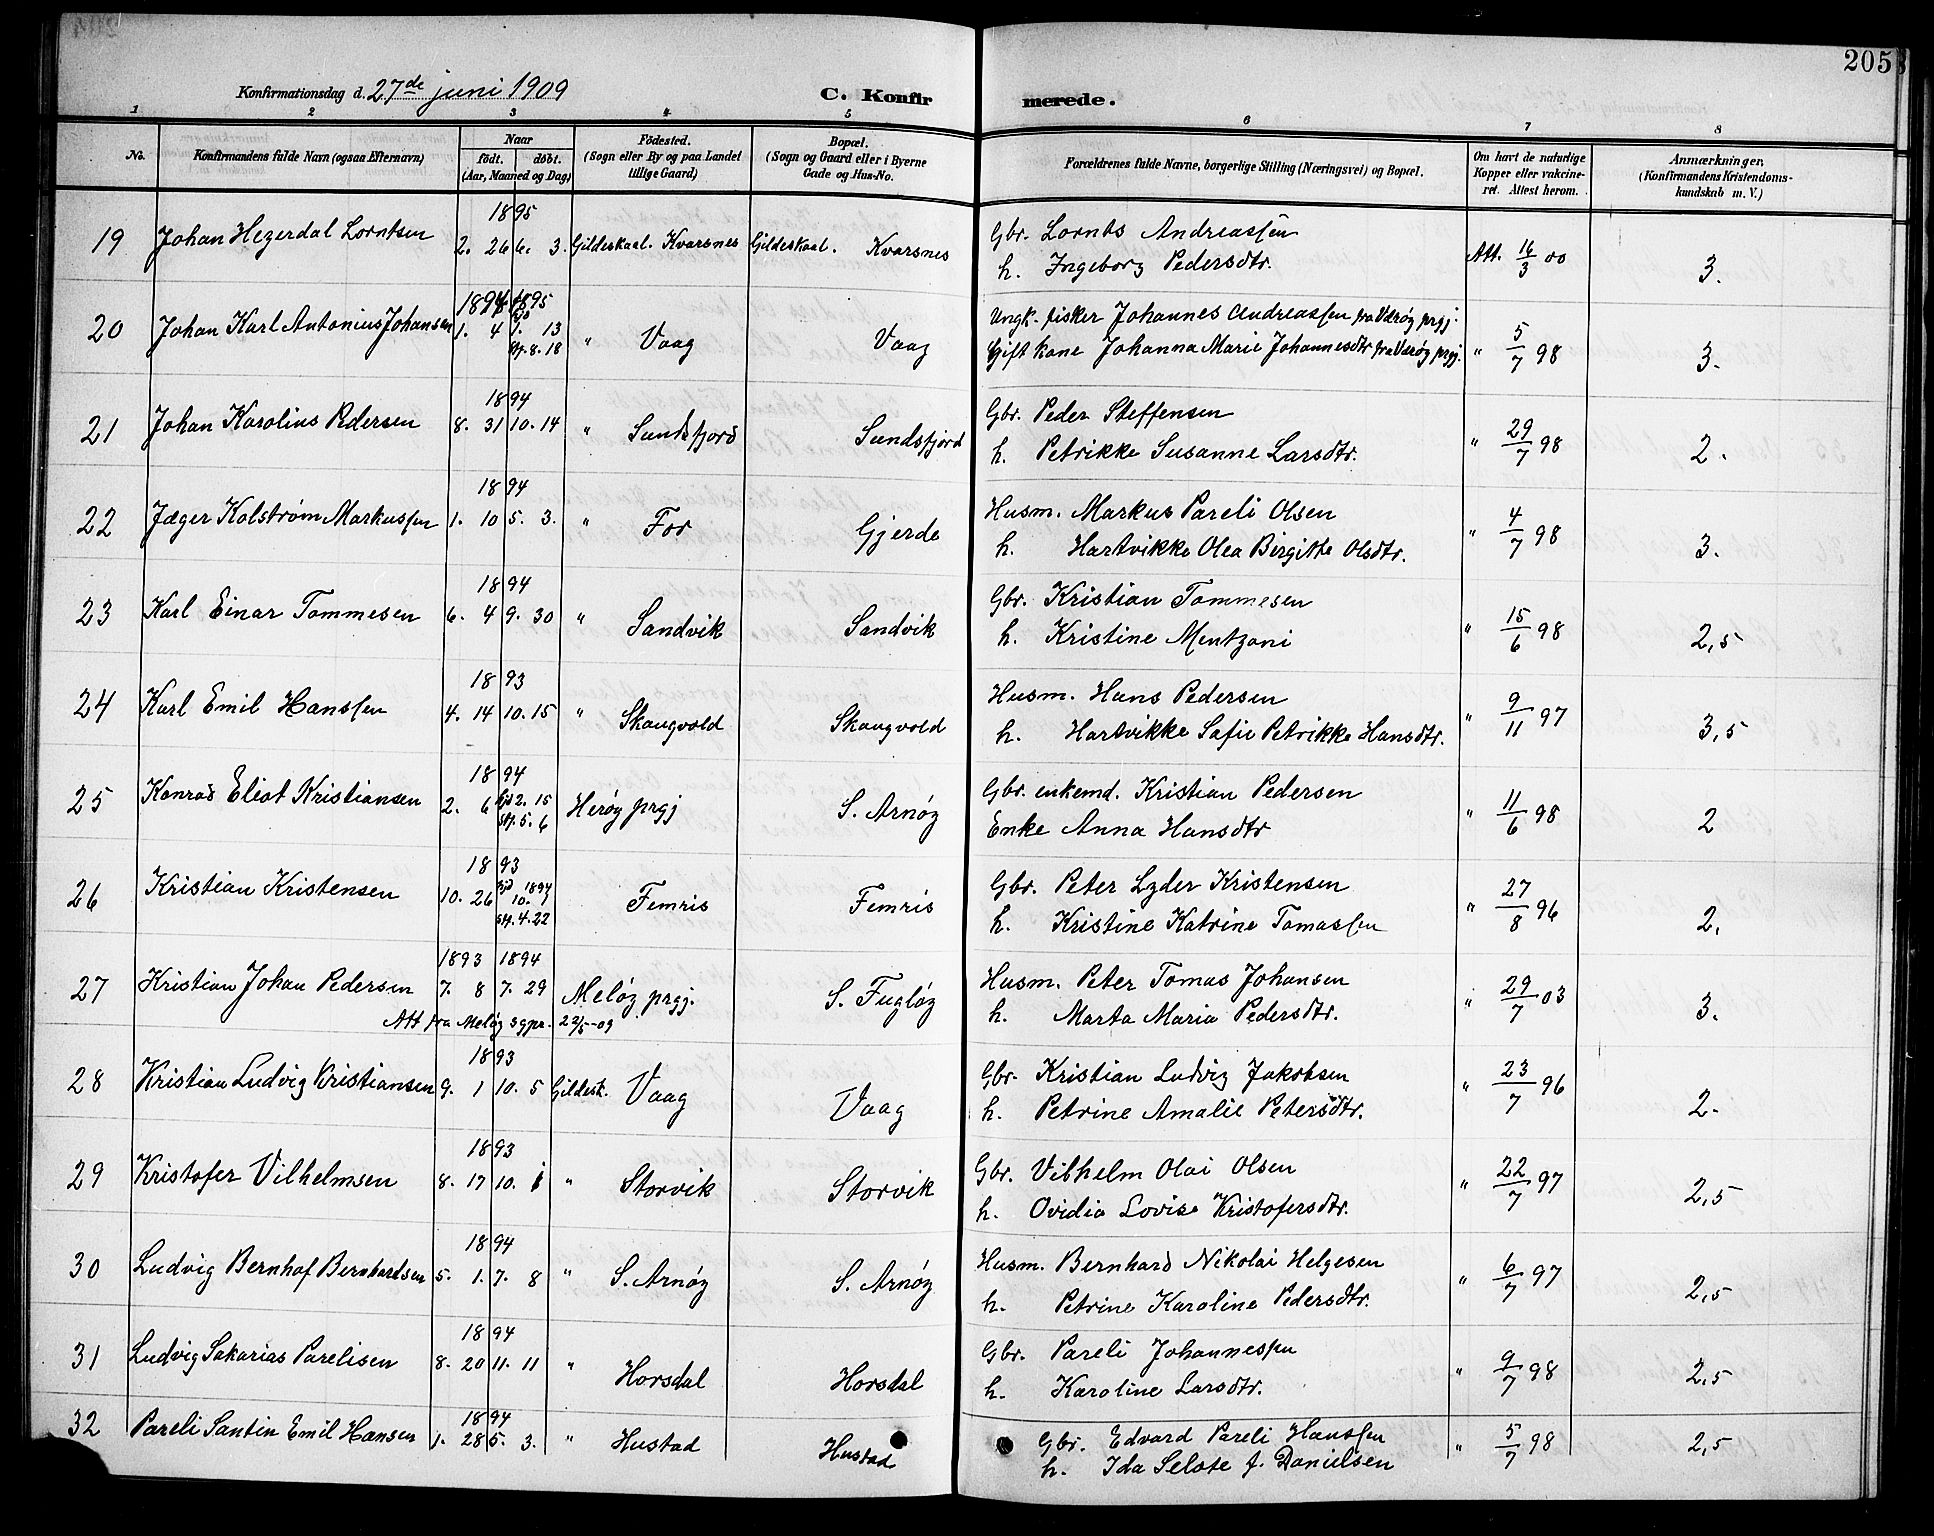 205
Konfirmationsdag d. 27de juni 1909
C. Konfirmerede.
1 2 3 4 5 6 7 8
No.
Konfirmandens fulde Navn (ogsaa Efternavn)
Naar
født. døbt.
(Aar, Maaned og Dag)
Fødested.
(Sogn eller By og paa Landet
tillige Gaard)
Bopæl.
(Sogn og Gaard eller i Byerne
Gade og Hus-No.
Forældrenes fulde Navne, borgerlige Stilling (Næringsvei) og Bopæl.
Om havt de naturlige
Kopper eller vakcine-
ret. Attest herom.
Anmærkninger,
(Konfirmandens Kristendoms-
kundskab m. V.)
1895
19 Johan Hegerdal Lorntsen 2. 26 6. 3. Gildeskaal. Kvarsnes Gildeskaal. Kvarsnes Gbr. Lornts Andreassen Att. 16/3 00 3.
h. Ingeborg Pedersdtr.
1894 1895
20 Johan Karl Antonius Johansen 1. 4 hjd 1. 13 " Vaag Vaag Ungk. fisker Johannes Andreassen fra Værøy prgj. " 5/7 98 3.
stf. 8. 18 Gift kone Johanna Marie Johannesdtr fra Værøy prgj.
1894
21 Johan Karolius Pedersen 8. 31 10. 14 " Sundsfjord Sundsfjord Gbr. Peder Steffensen " 29/7 98 2.
h. Petrikke Susanne Larsdtr.
1894
22 Jæger Kolstrøm Markussen 1. 10 5. 3. " For Gjerde Husm. Markus Pareli Olsen " 4/7 98 3.
h. Hartvikke Olea Birgitte Olsdtr.
1894
23 Karl Einar Tommesen 6. 4 9. 30 " Sandvik Sandvik Gbr. Kristian Tommesen " 15/6 98 2,5
h. Kristine Mentzoni
1893
24 Karl Emil Hanssen 4. 14 10. 15 " Skaugvold Skaugvold Husm. Hans Pedersen " 9/11 97 3,5
h. Hartvikke Sofie Petrikke Hansdtr.
1894
25 Konrad Eliot Kristiansen 2. 6 hjd 2. 15 Herøy prgj S. Arnøy Gbr. enkemd. Kristian Pedersen " 11/6 98 2
stf. 5. 6 Enke Anna Hansdtr
1893
26 Kristian Kristensen 10. 26 hjd 1894 Femris Femris Gbr. Peter Lyder Kristensen " 27/8 96 2.
stf. 4. 22 h. Kristine Katrine Tomassen
1893 1894
27 Kristian Johan Pedersen 7. 8 7. 29 Meløy prgj. S. Fugløy Husm. Peter Tomas Johansen " 29/7 03 3.
Att fra Meløy sgpr. 22/5-09 h. Marta Maria Pedersdtr.
1893
28 Kristian Ludvig Kristiansen 9. 1 10. 5 Gildesk. Vaag Vaag Gbr. Kristian Ludvig Jakobsen " 23/7 96 2.
h. Petrine Amalie Petersdtr.
1893
29 Kristofer Vilhelmsen 8. 17 10. 1 " Storvik Storvik Gbr. Vilhelm Olai Olsen " 22/7 97 2,5
h. Ovidia Lovise Kristofersdtr.
1894
30 Ludvig Bernhof Bernhardsen 5. 1. 7. 8 " S. Arnøy S. Arnøy Husm. Bernhard Nikolai Helgesen " 6/7 97 2,5
h. Petrine Karoline Pedersdtr.
1894
31 Ludvig Sakarias Parelisen 8. 20 11. 11 " Horsdal Horsdal Gbr. Pareli Johannessen " 9/7 98 2,5
h. Karoline Larsdtr.
1894
32 Pareli Santin Emil Hansen 1. 28 5. 3. " Hustad Hustad Gbr. Edvard Pareli Hanssen " 5/7 98 2,5
h. Ida Selote f. Danielsen